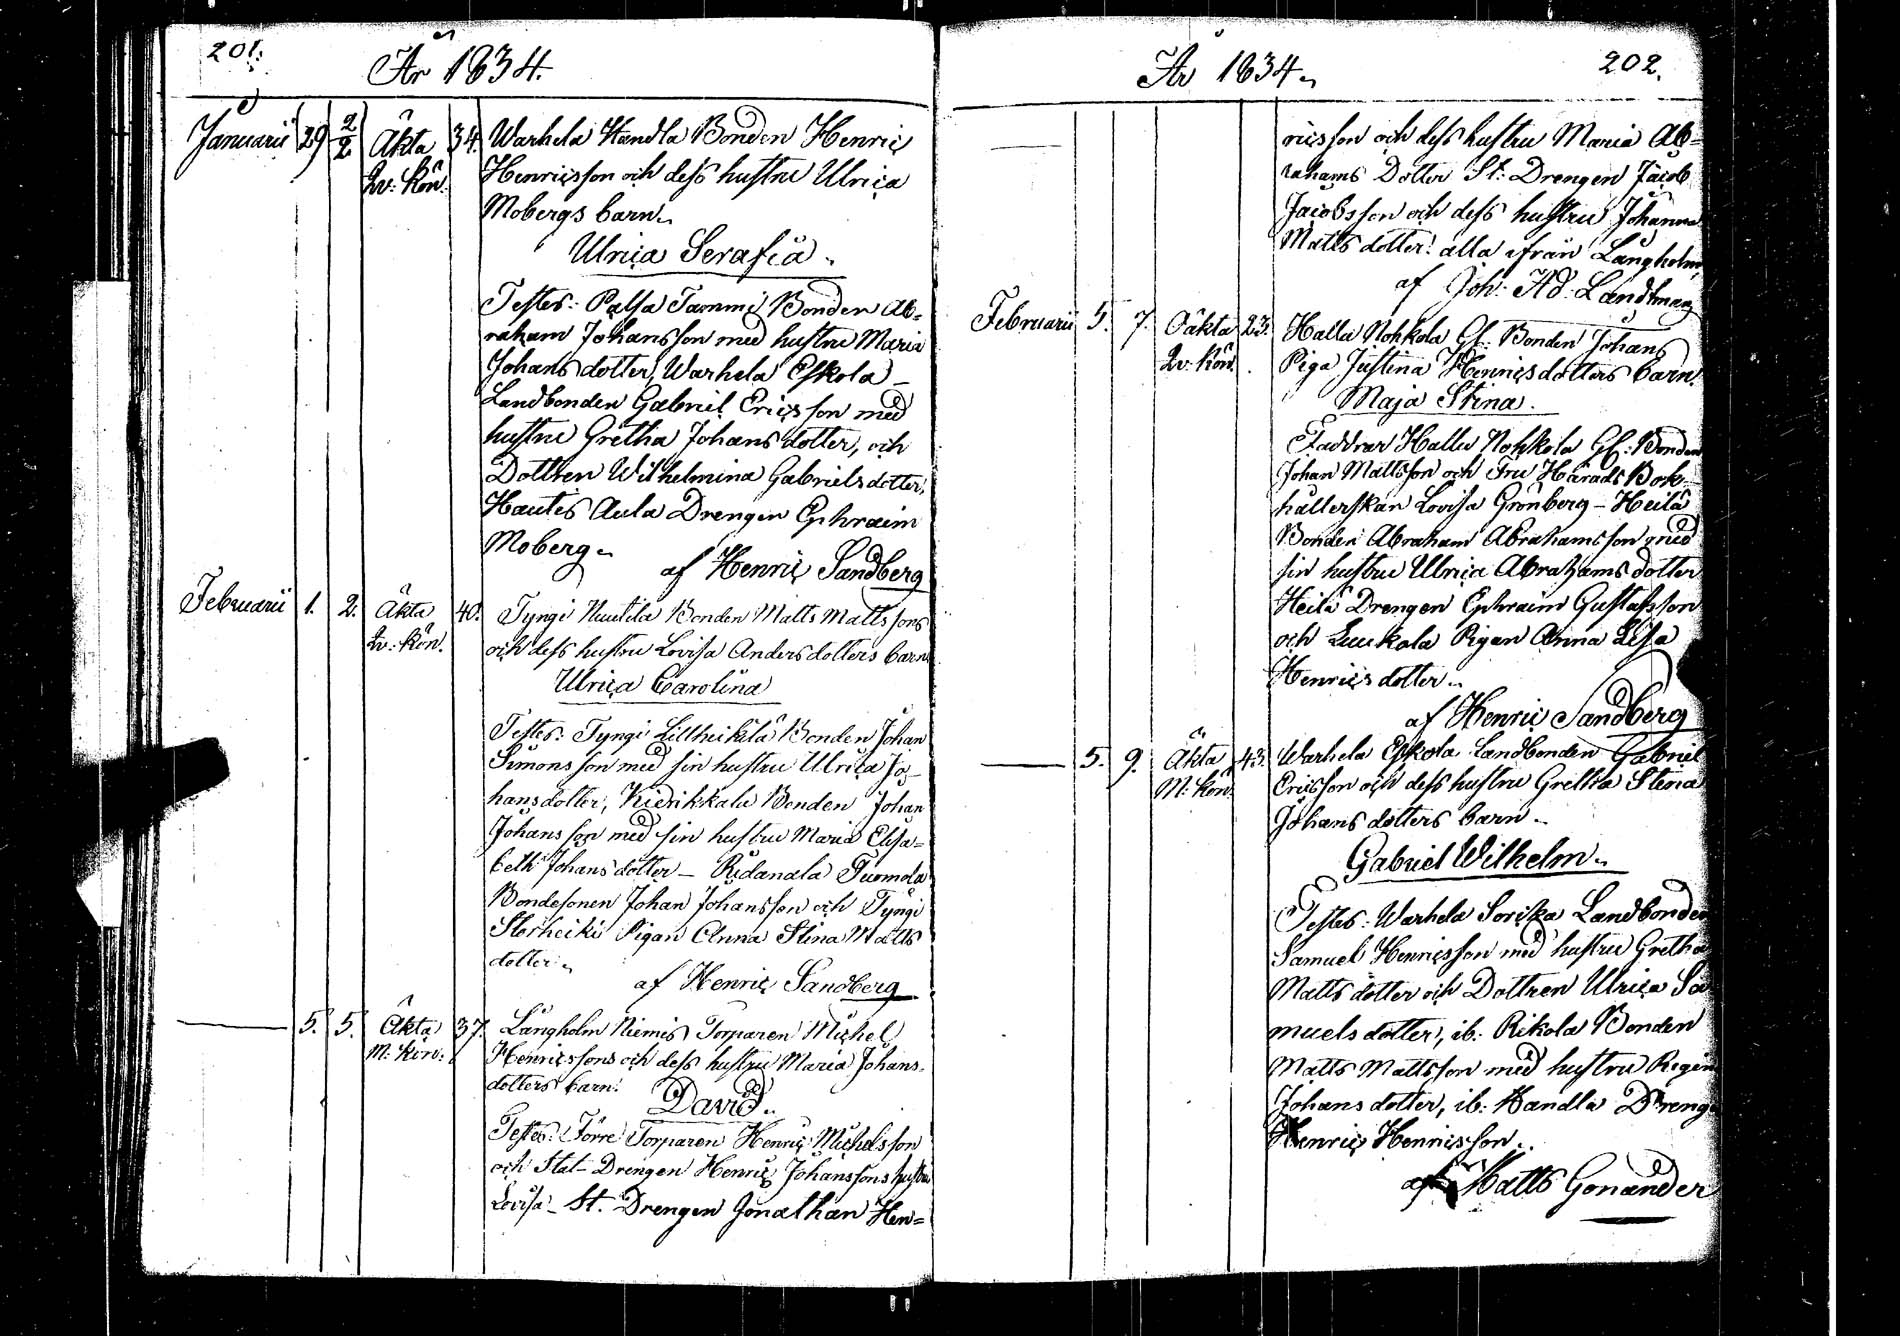 201.
År 1834.
Januarii 29 2/2 Äkta 34. Warhela Handla Bonden Henric
Qv: Kön. Henricsson och dess hustru Ulrica
Mobergs barn.
Ulrica Serafia.
Testes: Palsa Tammi Bonden Ab=
raham Johansson med hustru Maria
Johansdotter, Warhela Eskola
Landbonden Gabriel Ericsson med
hustru Gretha Johansdotter, och
Dottren Wilhelmina Gabrielsdotter,
Hautis Aula Drengen Ephraim
Moberg.
af Henric Sandberg
Februarii 1. 2. Äkta 40. Tyngi Nuutila Bonden Matts Mattssons
Qv: Kön. och dess hustru Lovisa Andersdotters barn
Ulrica Carolina
Testes: Tyngi Lillheikilä Bonden Johan
Simonsson med sin hustru Ulrica Jo=
hansdotter, Bonden Johan
Johansson med sin hustru Maria Elisa=
beth Johansdotter – Ridanala Tuomola
Bondesonen Johan Johansson och Tyngi
Storheiki Pigan Anna Stina Matts
dotter.
af Henric Sandberg
5. 5. Äkta 37. Långholm Niemis Torparen Michel
M: Kön: Henricssons och dess hustru Maria Johans-
dotters barn.
David.
Testes: Förre Torparen Henric Michelsson
och Stat-Drengen Henric Johanssons hustru
Lovisa – St. Drengen Jonathan Hen=
År 1834.
202.
ricsson och dess hustru Maria Ab=
rahams Dotter St: Drengen Jacob
Jacobsson och dess hustru Johanna
Matts dotter: alla ifrån Långholm,
af Joh: Ad: Landtman
Februarii 5. 7. Oäkta 23. Halla Nohkola Gl: Bonden Johans
Qv: Kön. Piga Justina Henricsdotters barn.
Maja Stina.
Faddrar Hallu Nohkola Gl: Bonden
Johan Mattsson och Fru Härads Bok-
hållerskan Lovisa Grönberg – Heilä
Bonden Abraham Abrahamsson med
sin hustru Ulrica Abrahamsdotter
Heilä Drengen Ephraim Gustafsson
och Luukala Pigan Anna Lisa
Henricsdotter.
af Henric Sandberg
5. 9. Äkta 43. Warhela Eskola Landbonden Gabriel
M: Kön. Ericsson och dess hustru Gretha Stina
Johans dotters barn.
Gabriel Wilhelm.
Testes: Warhela Sorikka Landbonden
Samuel Henricsson med hustru Gretha
Matts dotter och Dottren Ulrica Sa
muelsdotter, ib: Rikola Bonden
Matts Mattsson med hustru Regin
Johansdotter, ib: Handla Dreng
Henric Henricsson.
af Matts Gonander